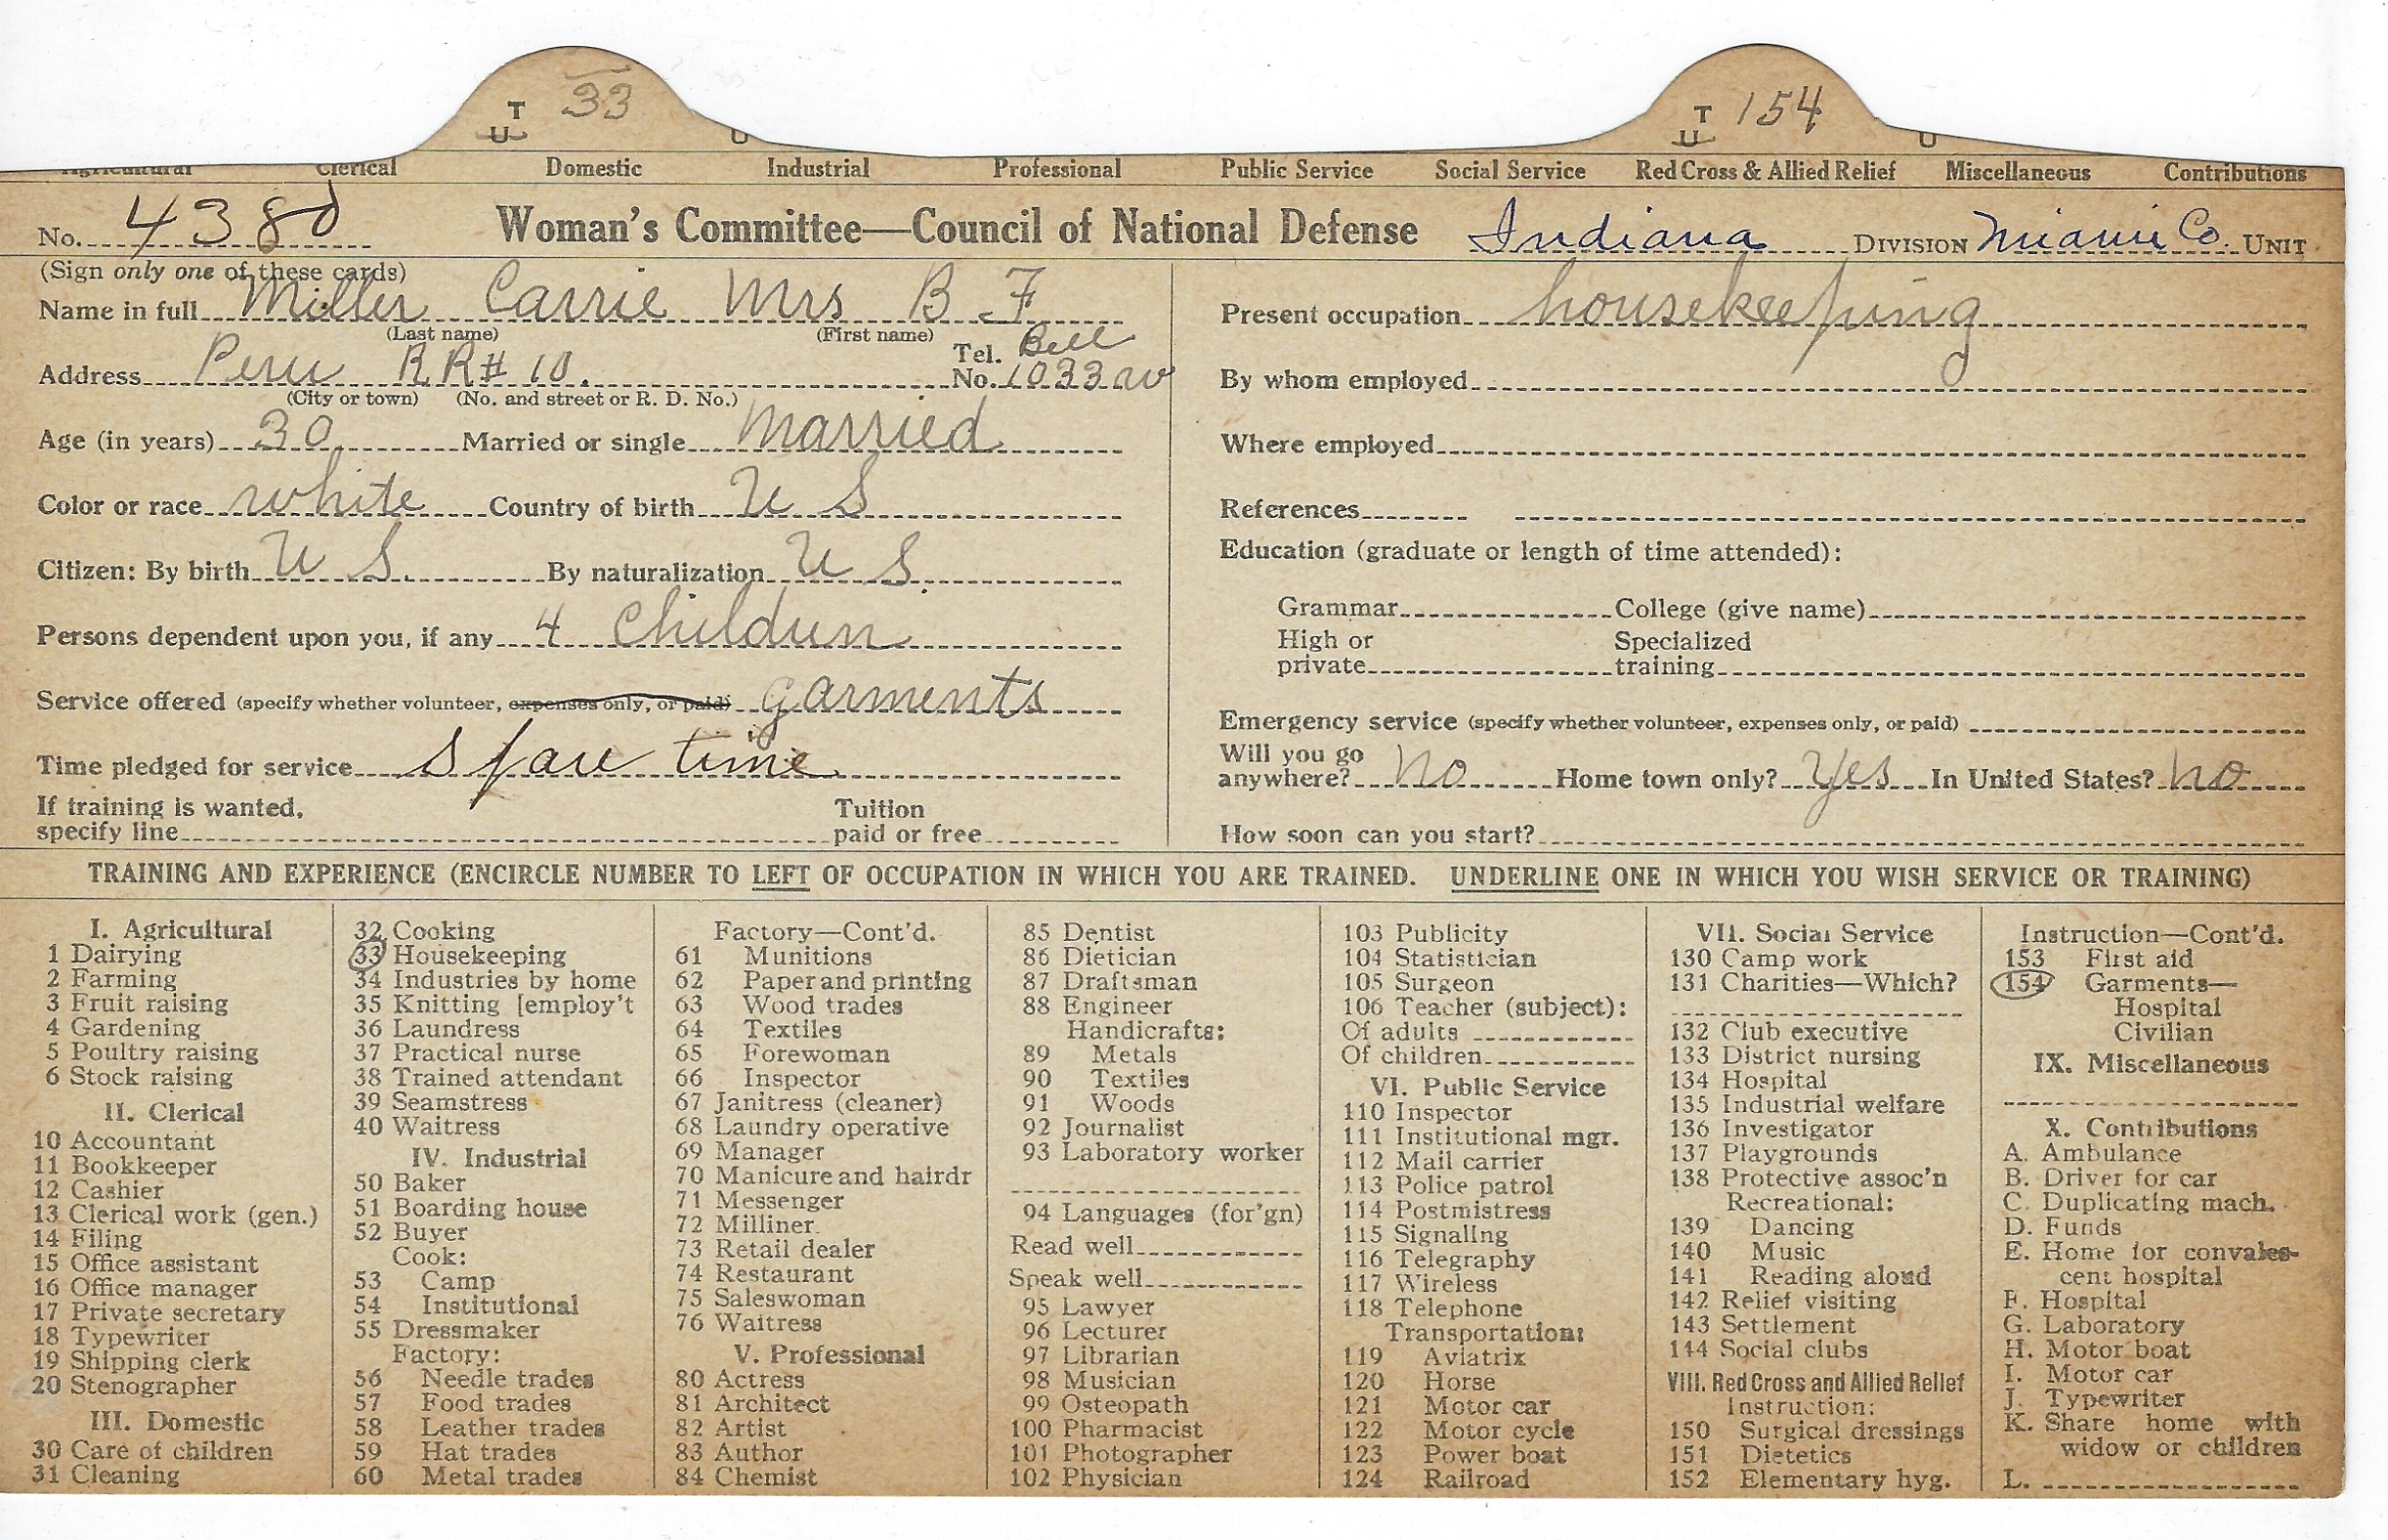 T 33 T 154
U U U U
Agricultural Clerical Domestic Industrial Professional Public Service Social Service Red Cross & Allied Relief Miscellaneous Contributions
No. 4380 Woman's Committee—Council of National Defense Indiana DIVISION Miami Co. UNIT
(Sign only one of these cards)
Name in full Miller Carrie Mrs B F
(Last name) (First name)
Address Peru RR# 10. Tel. No. Bell 1033 W
(City or town) (No. and street or R. D. No.)
Age (in years) 30 Married or single Married
Color or race white Country of birth U S
Citizen: By birth U S. By naturalization U S.
Persons dependent upon you, if any 4 Children
Service offered (specify whether volunteer, expenses only, or paid) garments
Time pledged for service Spare time
If training is wanted, specify line Tuition paid or free
Present occupation housekeeping
By whom employed
Where employed
References
Education (graduate or length of time attended):
Grammar College (give name)
High or private Specialized training
Emergency service (specify whether volunteer, expenses only, or paid)
Will you go anywhere? No Home town only? Yes In United States? No
How soon can you start?
TRAINING AND EXPERIENCE (ENCIRCLE NUMBER TO LEFT OF OCCUPATION IN WHICH YOU ARE TRAINED. UNDERLINE ONE IN WHICH YOU WISH SERVICE OR TRAINING)
I. Agricultural
1 Dairying
2 Farming
3 Fruit raising
4 Gardening
5 Poultry raising
6 Stock raising
II. Clerical
10 Accountant
11 Bookkeeper
12 Cashier
13 Clerical work (gen.)
14 Filing
15 Office assistant
16 Office manager
17 Private secretary
18 Typewriter
19 Shipping clerk
20 Stenographer
III. Domestic
30 Care of children
31 Cleaning
32 Cooking
33 Housekeeping
34 Industries by home
35 Knitting [employ't
36 Laundress
37 Practical nurse
38 Trained attendant
39 Seamstress
40 Waitress
IV. Industrial
50 Baker
51 Boarding house
52 Buyer
Cook:
53 Camp
54 Institutional
55 Dressmaker
Factory:
56 Needle trades
57 Food trades
58 Leather trades
59 Hat trades
60 Metal trades
Factory—Cont'd.
61 Munitions
62 Paper and printing
63 Wood trades
64 Textiles
65 Forewoman
66 Inspector
67 Janitress (cleaner)
68 Laundry operative
69 Manager
70 Manicure and hairdr
71 Messenger
72 Milliner.
73 Retail dealer
74 Restaurant
75 Saleswoman
76 Waitress
V. Professional
80 Actress
81 Architect
82 Artist
83 Author
84 Chemist
85 Dentist
86 Dietician
87 Draftsman
88 Engineer
Handicrafts:
89 Metals
90 Textiles
91 Woods
92 Journalist
93 Laboratory worker
94 Languages (for'gn)
Read well
Speak well
95 Lawyer
96 Lecturer
97 Librarian
98 Musician
99 Osteopath
100 Pharmacist
101 Photographer
102 Physician
103 Publicity
104 Statistician
105 Surgeon
106 Teacher (subject):
Of adults
Of children
VI. Public Service
110 Inspector
111 Institutional mgr.
112 Mail carrier
113 Police patrol
114 Postmistress
115 Signaling
116 Telegraphy
117 Wireless
118 Telephone
Transportation:
119 Aviatrix
120 Horse
121 Motor car
122 Motor cycle
123 Power boat
124 Railroad
VII. Social Service
130 Camp work
131 Charities—Which?
132 Club executive
133 District nursing
134 Hospital
135 Industrial welfare
136 Investigator
137 Playgrounds
138 Protective assoc'n
Recreational:
139 Dancing
140 Music
141 Reading aloud
142 Relief visiting
143 Settlement
144 Social clubs
VIII. Red Cross and Allied Relief
Instruction:
150 Surgical dressings
151 Dietetics
152 Elementary hyg.
Instruction—Cont'd.
153 First aid
154 Garments—
Hospital
Civilian
IX. Miscellaneous
X. Contributions
A. Ambulance
B. Driver for car
C. Duplicating mach.
D. Funds
E. Home for convales-
cent hospital
F. Hospital
G. Laboratory
H. Motor boat
I. Motor car
J. Typewriter
K. Share home with
widow or children
L.